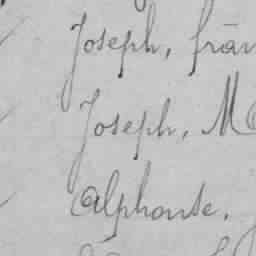 Joseph, frän
Joseph, M
Alphonse,